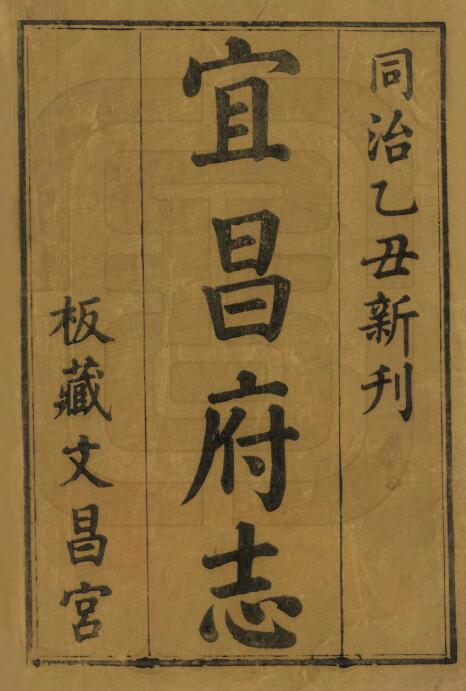 同治乙丑新刊
宜昌府志
板藏文昌宮